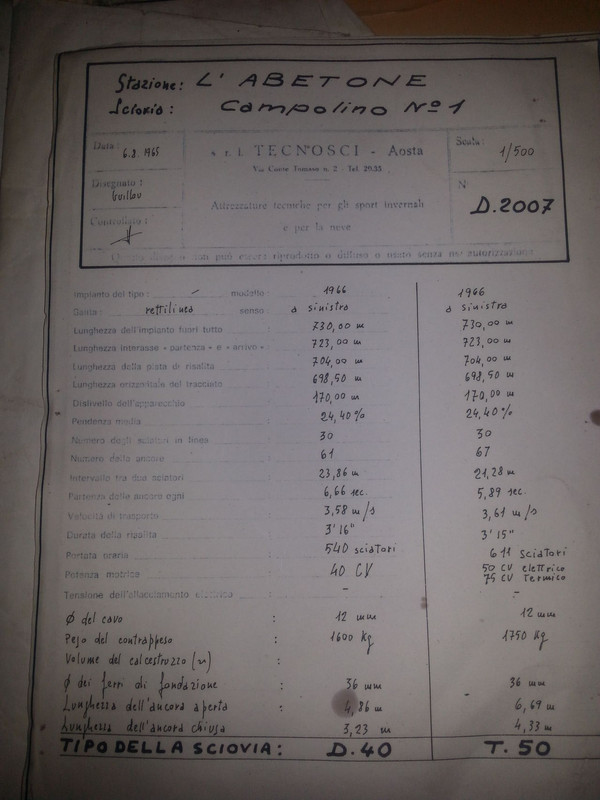 Stazione: L' ABETONE
Sciovia: Campolino Nº1
Data: 6.8.1965
s. r. l. TECNOSCI - Aosta
Scala: 1/500
Disegnato:
Attrezzature tecniche per gli sport invernali
e per la neve
N. D.2007
Controllato:
Questo disegno non può essere riprodotto o diffuso o usato senza ns. autorizzazione
Impianto del tipo: - modello: 1966 1966
Salita: rettilinea senso: a sinistra a sinistra
Lunghezza dell'impianto fuori tutto : 730,00 m 730,00 m
Lunghezza interasse « partenza » e « arrivo » : 723,00 m 723,00 m
Lunghezza della pista di risalita : 704,00 m 704,00 m
Lunghezza orizzontale del tracciato : 698,50 m 698,50 m
Dislivello dell'apparecchio : 170,00 m 170,00 m
Pendenza media : 24,40% 24,40%
Numero degli sciatori in linea : 30 30
Numero delle ancore : 61 67
Intervallo fra due sciatori : 23,86 m 21,28 m
Partenza delle ancore ogni : 6,66 sec. 5,89 sec.
Velocità di trasporto : 3,58 m/s 3,61 m/s
Durata della risalita : 3' 16" 3' 15"
Portata oraria : 540 sciatori 611 sciatori
Potenza motrice : 40 CV 50 CV elettrico
75 CV termico
Tensione dell'allacciamento elettrico : - -
Ø del cavo : 12 mm 12 mm
Peso del contrappeso : 1600 Kg 1750 Kg
Volume del calcestruzzo (~) :
Ø dei ferri di fondazione : 36 mm 36 mm
Lunghezza dell'ancora aperta : 4,86 m 6,69 m
Lunghezza dell'ancora chiusa : 3,23 m 4,33 m
TIPO DELLA SCIOVIA: D.40 T.50